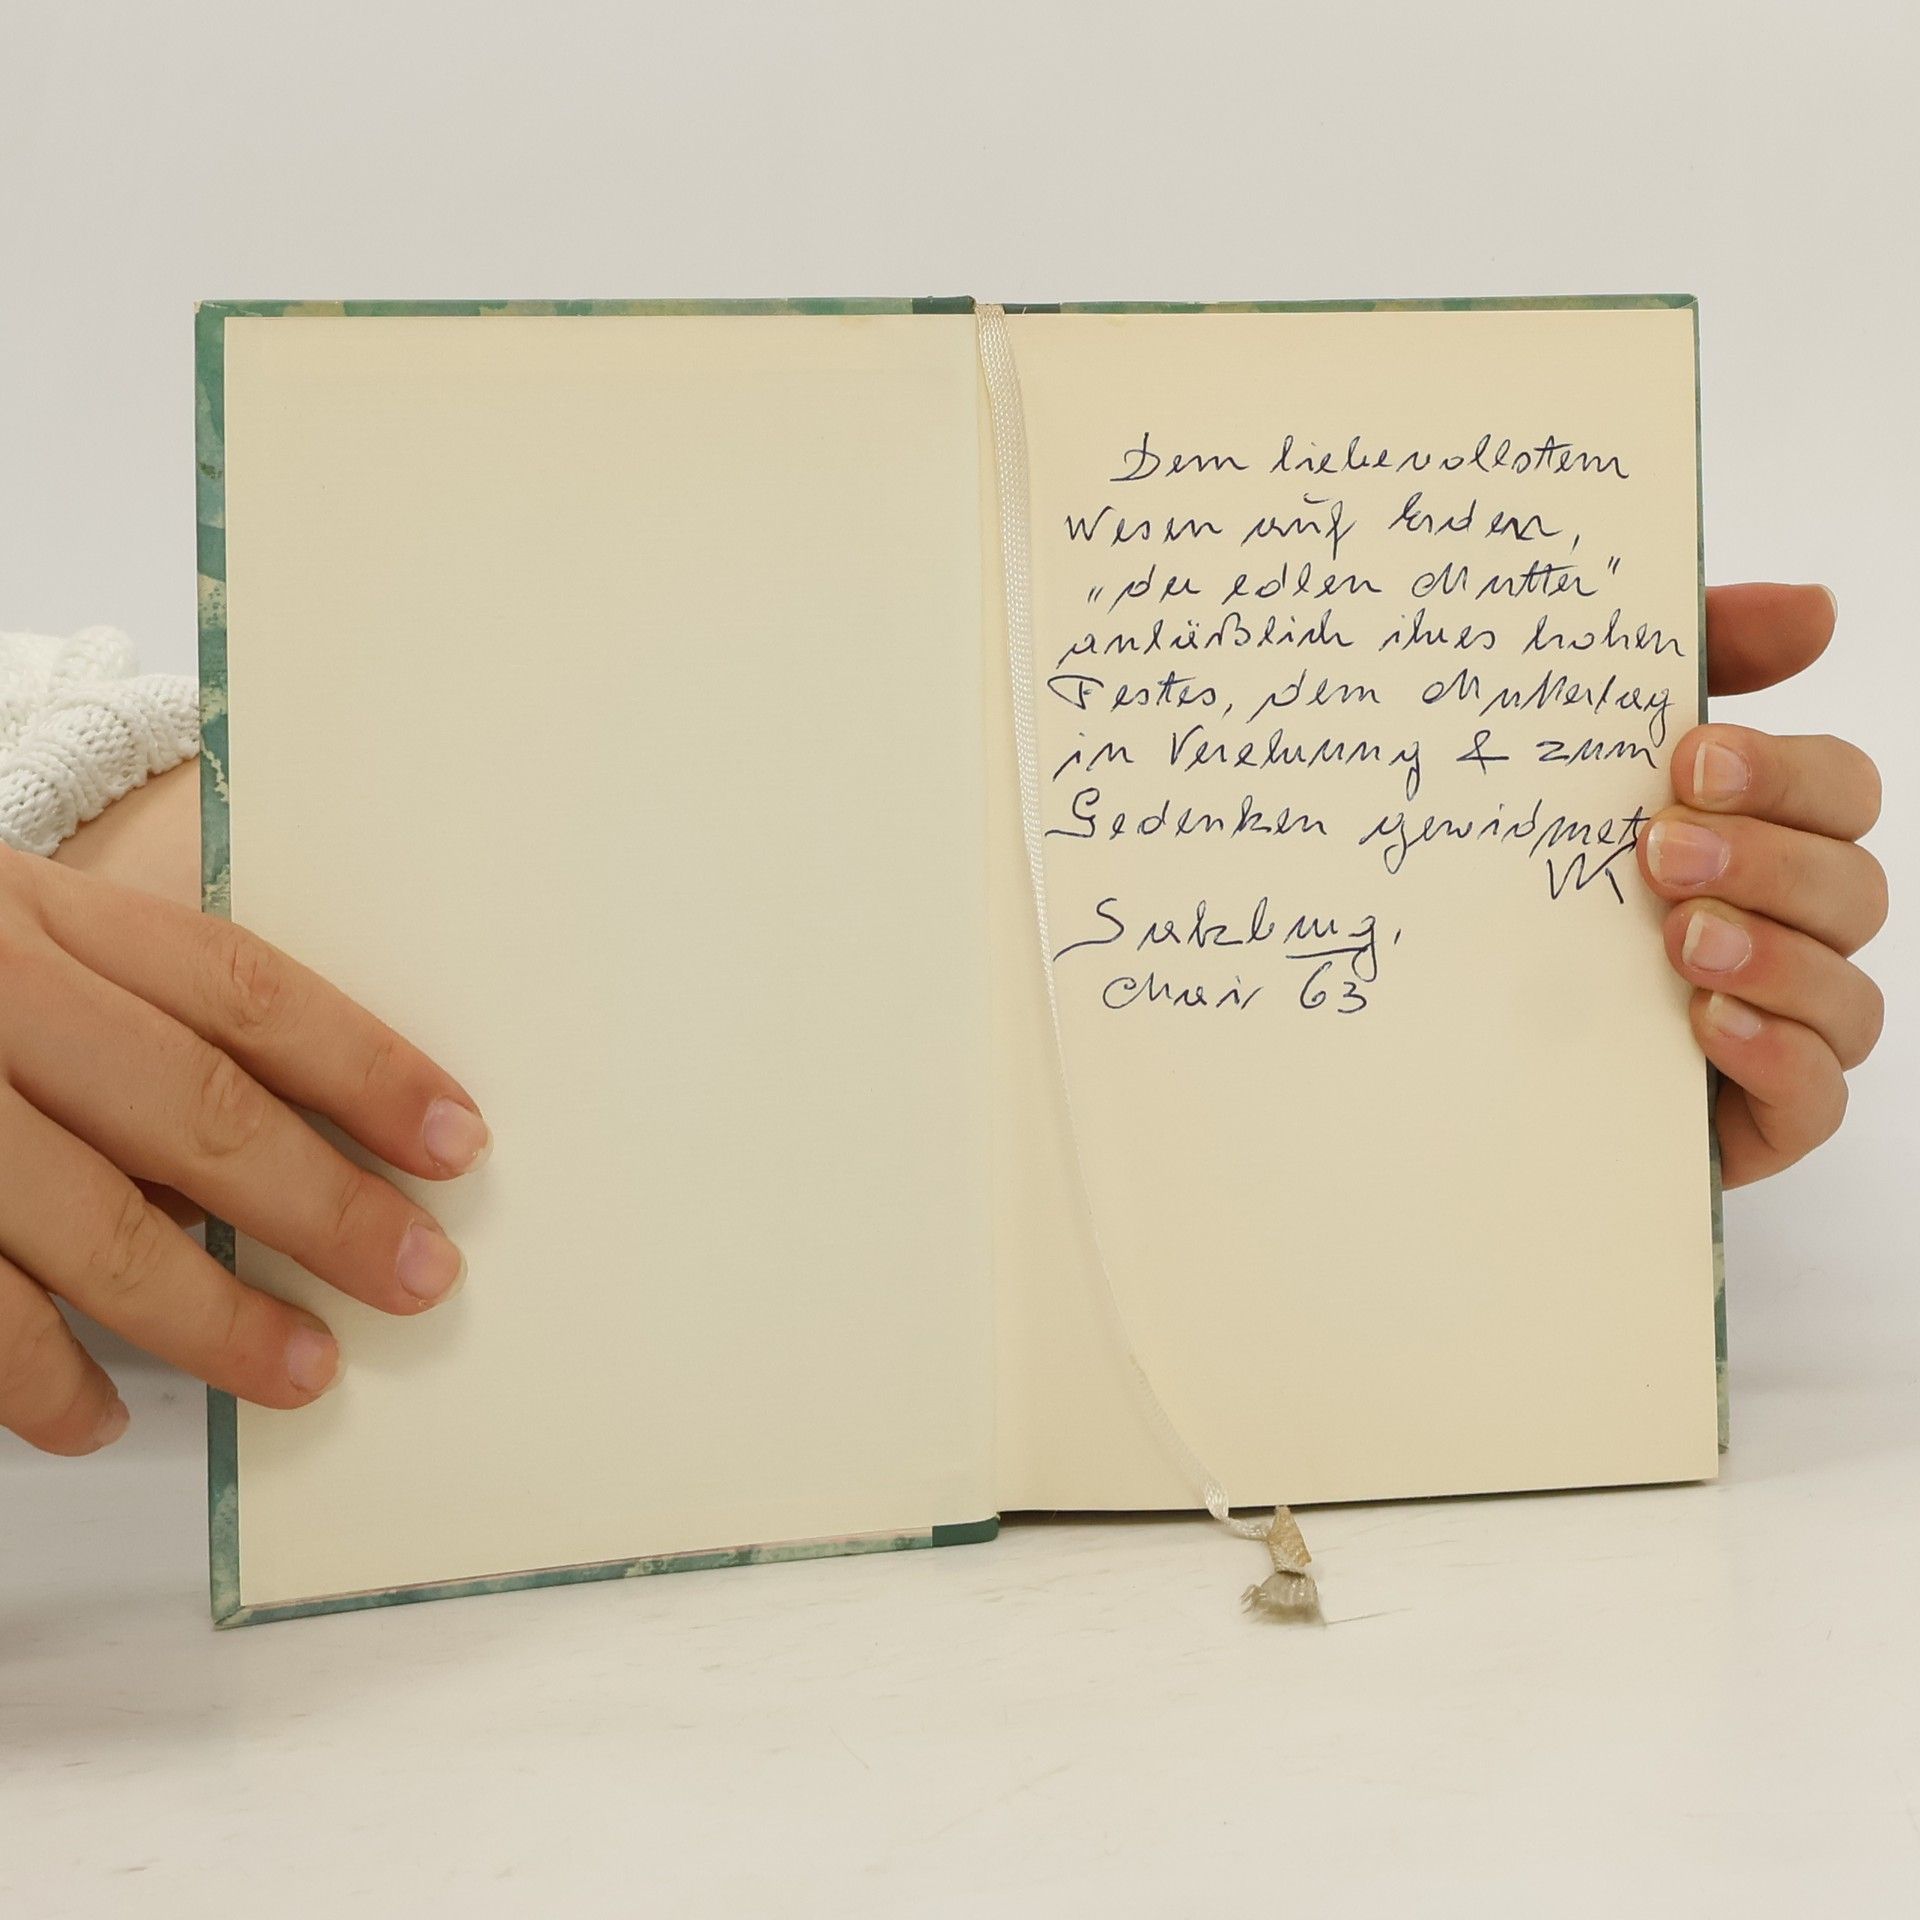 Dem liebevollstem
Wesen auf Erden,
„der edlen Mutter"
anläßlich ihres hohen
Festes, dem Muttertag
in Verehrung & zum
Gedenken gewidmet
Salzburg,
Mai 63